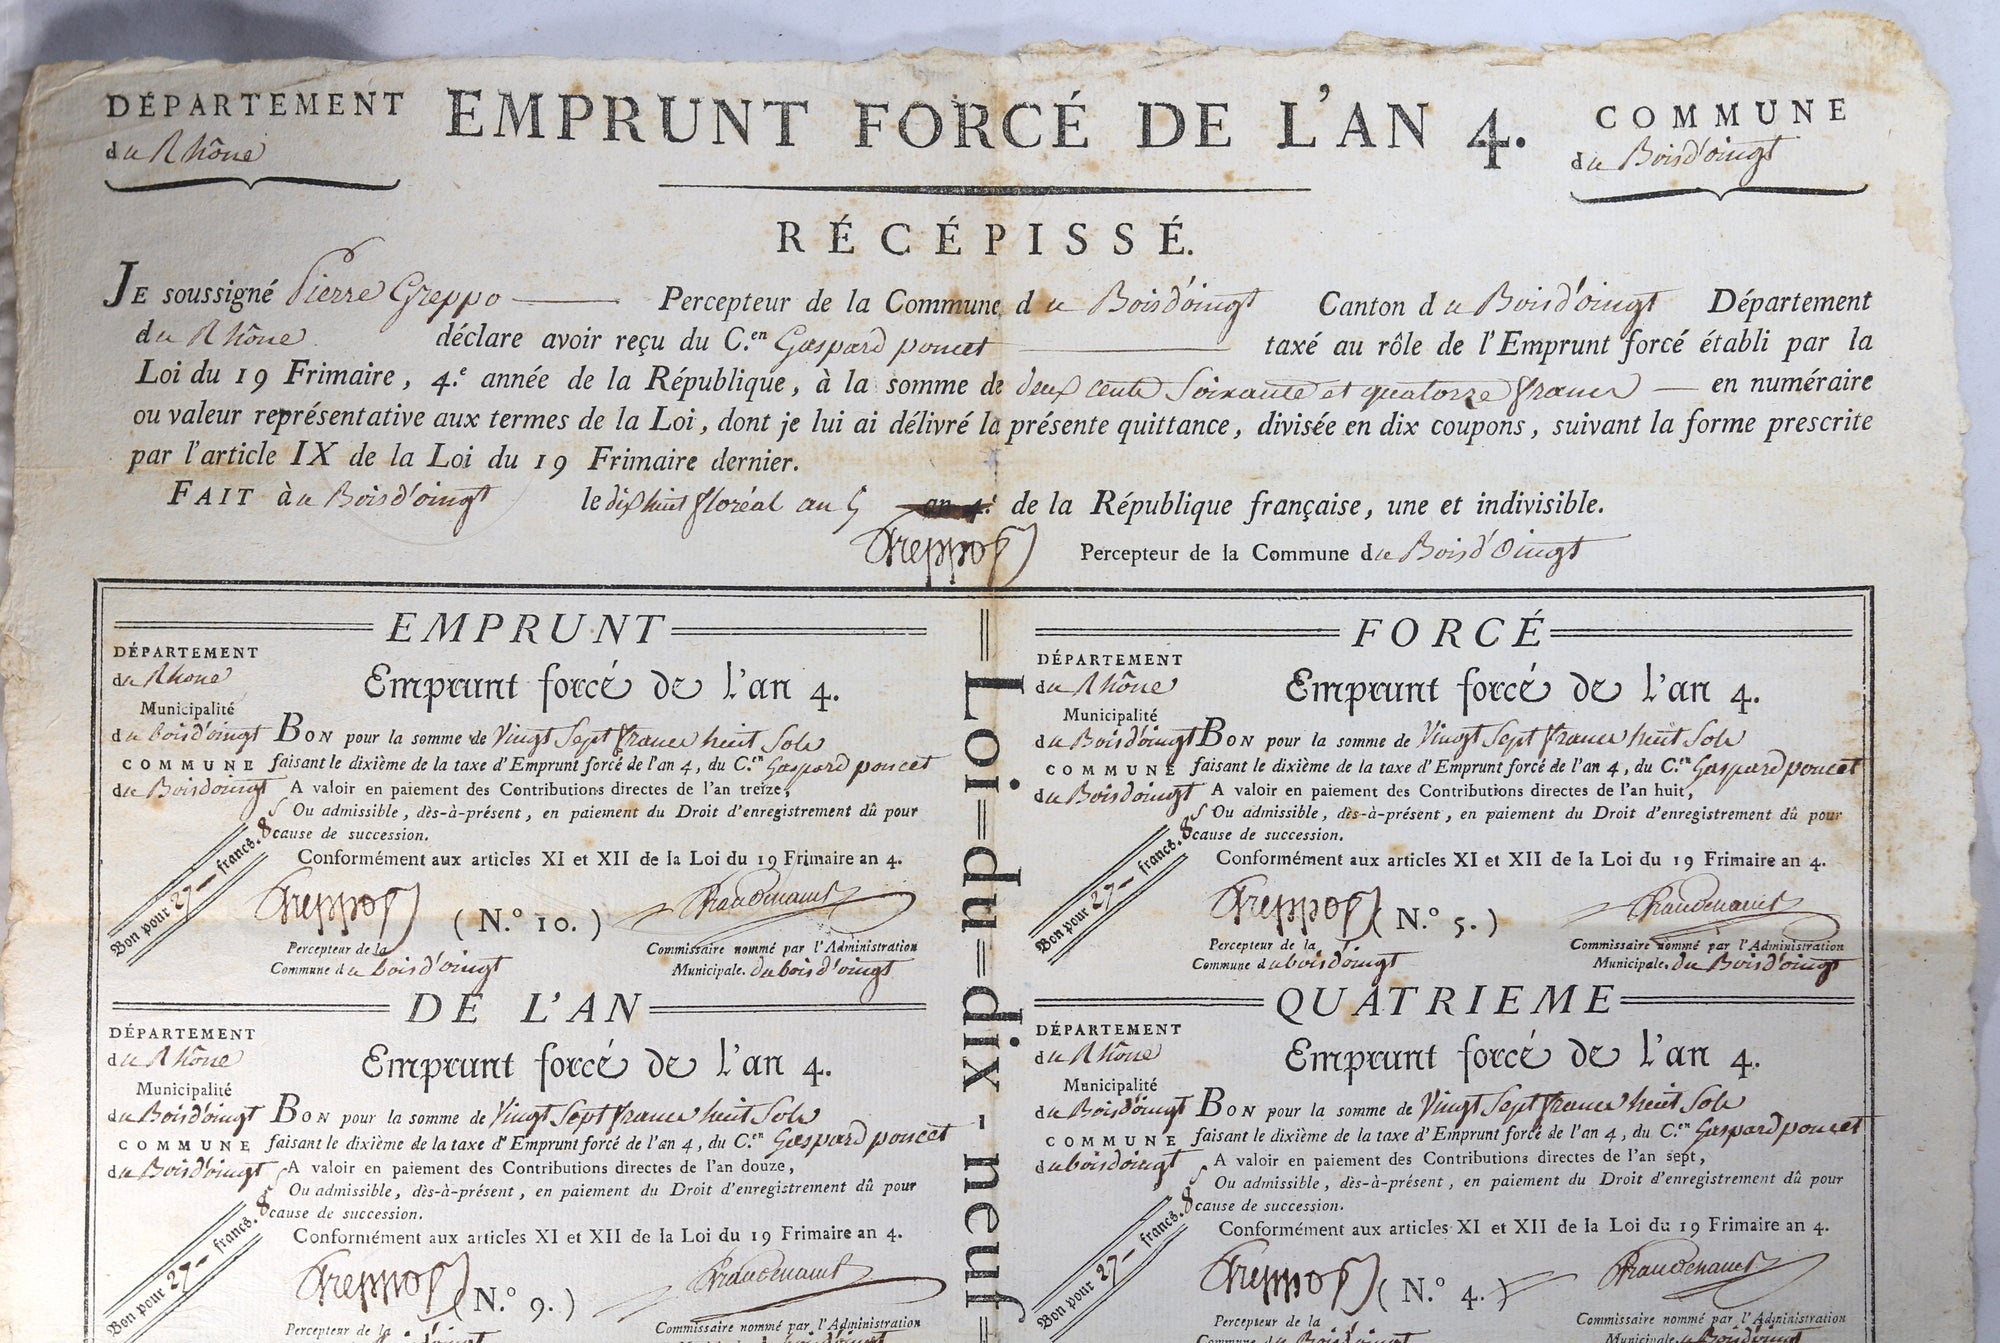 DÉPARTEMENT
du Rhône
EMPRUNT FORCÉ DE L'AN 4.
COMMUNE
du Boisd'oingt
RÉCÉPISSÉ.
JE soussigné Pierre Greppo Percepteur de la Commune du Boisd'oingt Canton du Boisd'oingt Département
du Rhône déclare avoir reçu du C.en Gaspard poncet taxé au rôle de l'Emprunt forcé établi par la
Loi du 19 Frimaire, 4.e année de la République, à la somme de deux cents Soixante et quatorze francs en numéraire
ou valeur représentative aux termes de la Loi, dont je lui ai délivré la présente quittance, divisée en dix coupons, suivant la forme prescrite
par l'article IX de la Loi du 19 Frimaire dernier.
FAIT àu Boisd'oingt le dix huit floréal an 5 an 4. de la République française, une et indivisible.
Greppo Percepteur de la Commune du Boisd'Oingt
EMPRUNT
DÉPARTEMENT
du Rhone
Emprunt forcé de l'an 4.
Municipalité
du boisd'oingt BON pour la somme de Vingt Sept francs huit Sols
COMMUNE faisant le dixième de la taxe d'Emprunt forcé de l'an 4, du C.en Gaspard poncet
du Boisdoingt A valoir en paiement des Contributions directes de l'an treize,
Ou admissible, dès-à-présent, en paiement du Droit d'enregistrement dû pour
cause de succession.
Conformément aux articles XI et XII de la Loi du 19 Frimaire an 4.
Bon pour 27 francs. 8 s
Greppo (N.o 10.)
Percepteur de la Commissaire nommé par l'Administration
Commune du bois d'oingt Municipale. du bois d'oingt
FORCÉ
DÉPARTEMENT
du Rhône
Emprunt forcé de l'an 4.
Municipalité
du Boisd'oingt BON pour la somme de Vingt Sept francs huit Sols
COMMUNE faisant le dixième de la taxe d'Emprunt forcé de l'an 4, du C.en Gaspard poncet
du Boisd'oingt A valoir en paiement des Contributions directes de l'an huit,
Ou admissible, dès-à-présent, en paiement du Droit d'enregistrement dû pour
cause de succession.
Conformément aux articles XI et XII de la Loi du 19 Frimaire an 4.
Bon pour 27 francs. 8 s
Greppo (N.o 5.)
Percepteur de la Commissaire nommé par l'Administration
Commune du boisd'oingt Municipale. du Boisd'oingt
Loi=du=dix-neuf
DE L'AN
DÉPARTEMENT
du Rhône
Emprunt forcé de l'an 4.
Municipalité
du Boisd'oingt BON pour la somme de Vingt Sept francs huit Sols
COMMUNE faisant le dixième de la taxe d'Emprunt forcé de l'an 4, du C.en Gaspard poncet
du Boisd'oingt A valoir en paiement des Contributions directes de l'an douze,
Ou admissible, dès-à-présent, en paiement du Droit d'enregistrement dû pour
cause de succession.
Conformément aux articles XI et XII de la Loi du 19 Frimaire an 4.
Bon pour 27 francs. 8 s
Greppo (N.o 9.)
Percepteur de la Commissaire nommé par l'Administration
QUATRIEME
DÉPARTEMENT
du Rhône
Emprunt forcé de l'an 4.
Municipalité
du Boisd'oingt BON pour la somme de Vingt Sept francs huit Sols
COMMUNE faisant le dixième de la taxe d'Emprunt forcé de l'an 4, du C.en Gaspard poncet
du boisdoingt A valoir en paiement des Contributions directes de l'an sept,
Ou admissible, dès-à-présent, en paiement du Droit d'enregistrement dû pour
cause de succession.
Conformément aux articles XI et XII de la Loi du 19 Frimaire an 4.
Bon pour 27 francs. 8 s
Greppo (N.o 4.)
Percepteur de la Commissaire nommé par l'Administration
Commune du Boisd'oingt Municipale. du Boisd'oingt